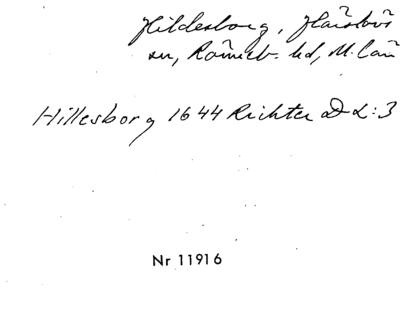 Hildesborg, Härslövs
sn, Rönneb. hd, M. län
Hillesborg 1644 Richter D L:3
Nr 11916